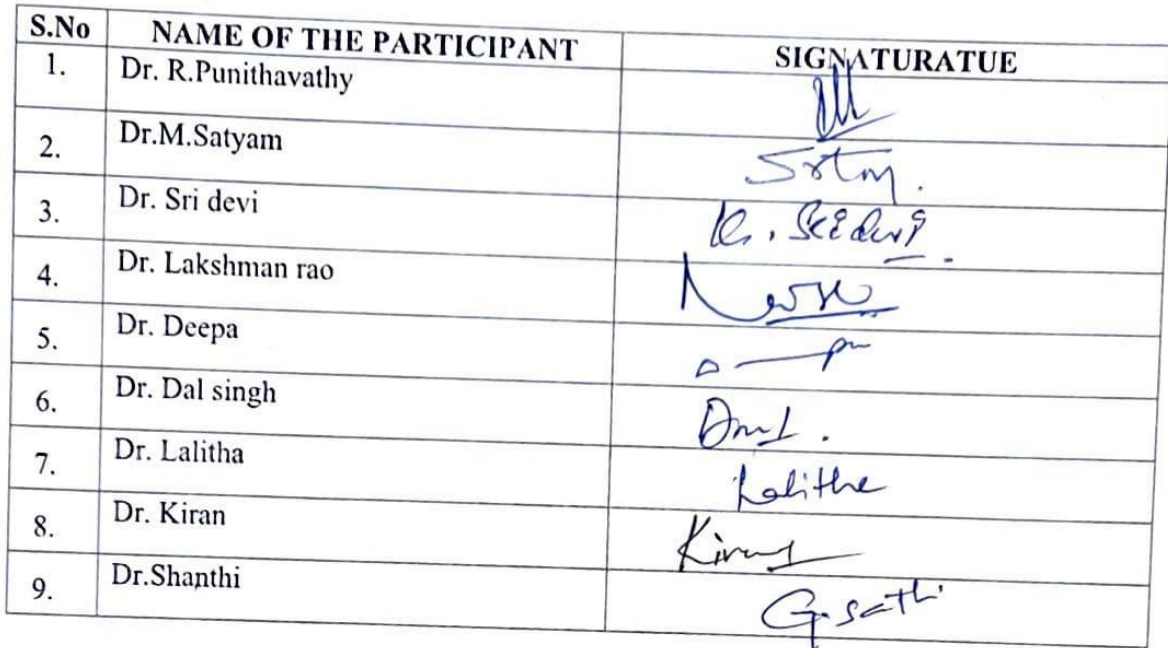 S.No NAME OF THE PARTICIPANT SIGNATURATUE
1. Dr. R.Punithavathy
2. Dr.M.Satyam
3. Dr. Sri devi
4. Dr. Lakshman rao
5. Dr. Deepa
6. Dr. Dal singh
7. Dr. Lalitha Lalitha
8. Dr. Kiran Kiran
9. Dr.Shanthi